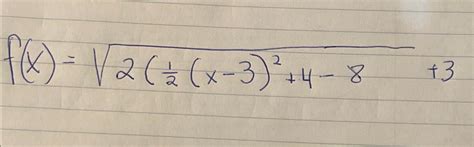 f(x) = √2(½(x-3)²+4-8 +3